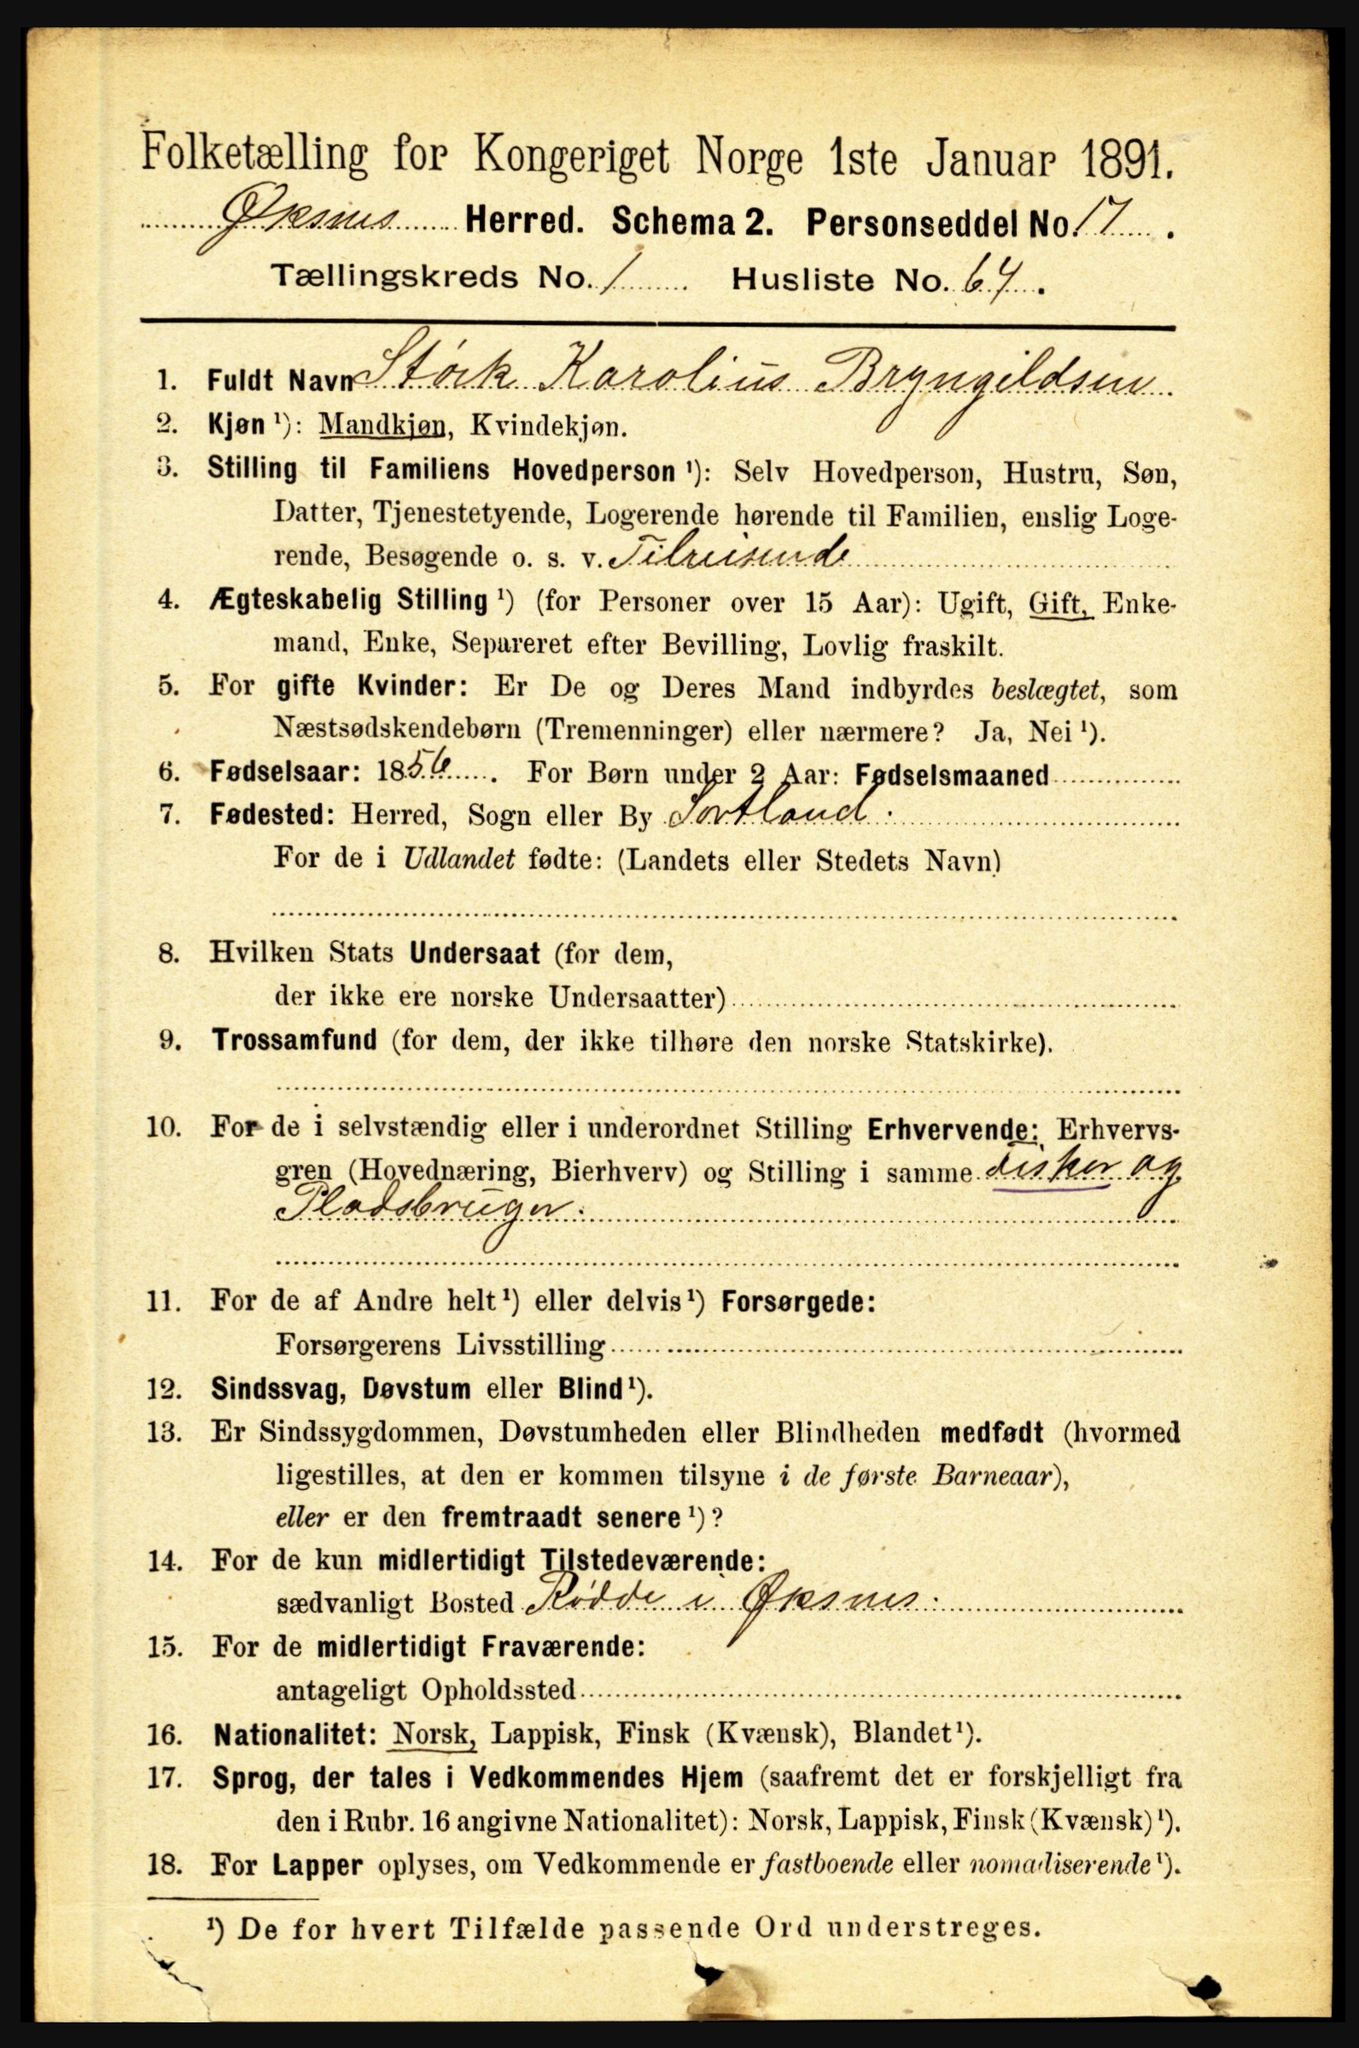 Folketælling for Kongeriget Norge 1ste Januar 1891.
Øksnes Herred. Schema 2. Personseddel No. 17.
Tællingskreds No. 1 Husliste No. 64.
1. Fuldt Navn Størk Karolius Bryngildsen
2. Kjøn ¹): Mandkjøn, Kvindekjøn.
3. Stilling til Familiens Hovedperson ¹): Selv Hovedperson, Hustru, Søn,
Datter, Tjenestetyende, Logerende hørende til Familien, enslig Loge-
rende, Besøgende o. s. v. Tilreisende
4. Ægteskabelig Stilling ¹) (for Personer over 15 Aar): Ugift, Gift, Enke-
mand, Enke, Separeret efter Bevilling, Lovlig fraskilt.
5. For gifte Kvinder: Er De og Deres Mand indbyrdes beslægtet, som
Næstsødskendebørn (Tremenninger) eller nærmere? Ja, Nei ¹).
6. Fødselsaar: 1856. For Børn under 2 Aar: Fødselsmaaned
7. Fødested: Herred, Sogn eller By Sortland.
For de i Udlandet fødte: (Landets eller Stedets Navn)
8. Hvilken Stats Undersaat (for dem,
der ikke ere norske Undersaatter)
9. Trossamfund (for dem, der ikke tilhøre den norske Statskirke).
10. For de i selvstændig eller i underordnet Stilling Erhvervende: Erhvervs-
gren (Hovednæring, Bierhverv) og Stilling i samme Fisker og
Pladsbruger.
11. For de af Andre helt ¹) eller delvis ¹) Forsørgede:
Forsørgerens Livsstilling
12. Sindssvag, Døvstum eller Blind ¹).
13. Er Sindssygdommen, Døvstumheden eller Blindheden medfødt (hvormed
ligestilles, at den er kommen tilsyne i de første Barneaar),
eller er den fremtraadt senere ¹)?
14. For de kun midlertidigt Tilstedeværende:
sædvanligt Bosted Rødde i Øksnes.
15. For de midlertidigt Fraværende:
antageligt Opholdssted
16. Nationalitet: Norsk, Lappisk, Finsk (Kvænsk), Blandet ¹).
17. Sprog, der tales i Vedkommendes Hjem (saafremt det er forskjelligt fra
den i Rubr. 16 angivne Nationalitet): Norsk, Lappisk, Finsk (Kvænsk) ¹).
18. For Lapper oplyses, om Vedkommende er fastboende eller nomadiserende ¹).
¹) De for hvert Tilfælde passende Ord understreges.